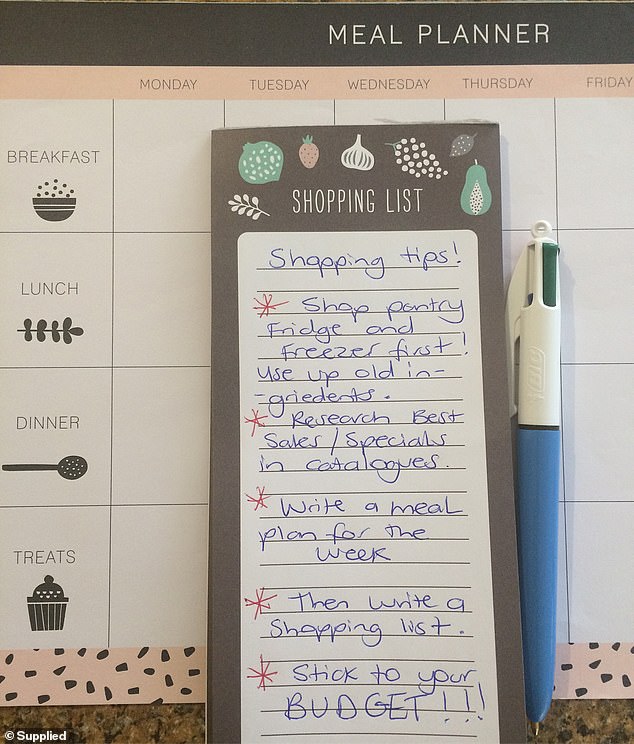 MEAL PLANNER
MONDAY TUESDAY WEDNESDAY THURSDAY FRIDAY
BREAKFAST
LUNCH
DINNER
TREATS
SHOPPING LIST
Shopping tips!
* Shop pantry
Fridge and
Freezer first!
Use up old in-
-griedents.
* Research Best
Sales/Specials
in catalogues.
* Write a meal
plan for the
week
* Then write a
Shopping list.
* Stick to your
BUDGET!!!
BIC
© Supplied